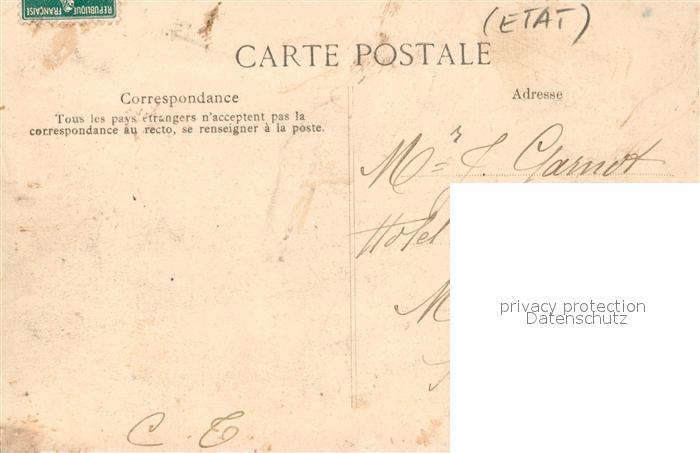 RÉPUBLIQUE FRANÇAISE
(ETAT)
CARTE POSTALE
Correspondance
Tous les pays étrangers n'acceptent pas la
correspondance au recto, se renseigner à la poste.
Adresse
Mr J. Garnot
Hotel
M
privacy protection
Datenschutz
C. T.